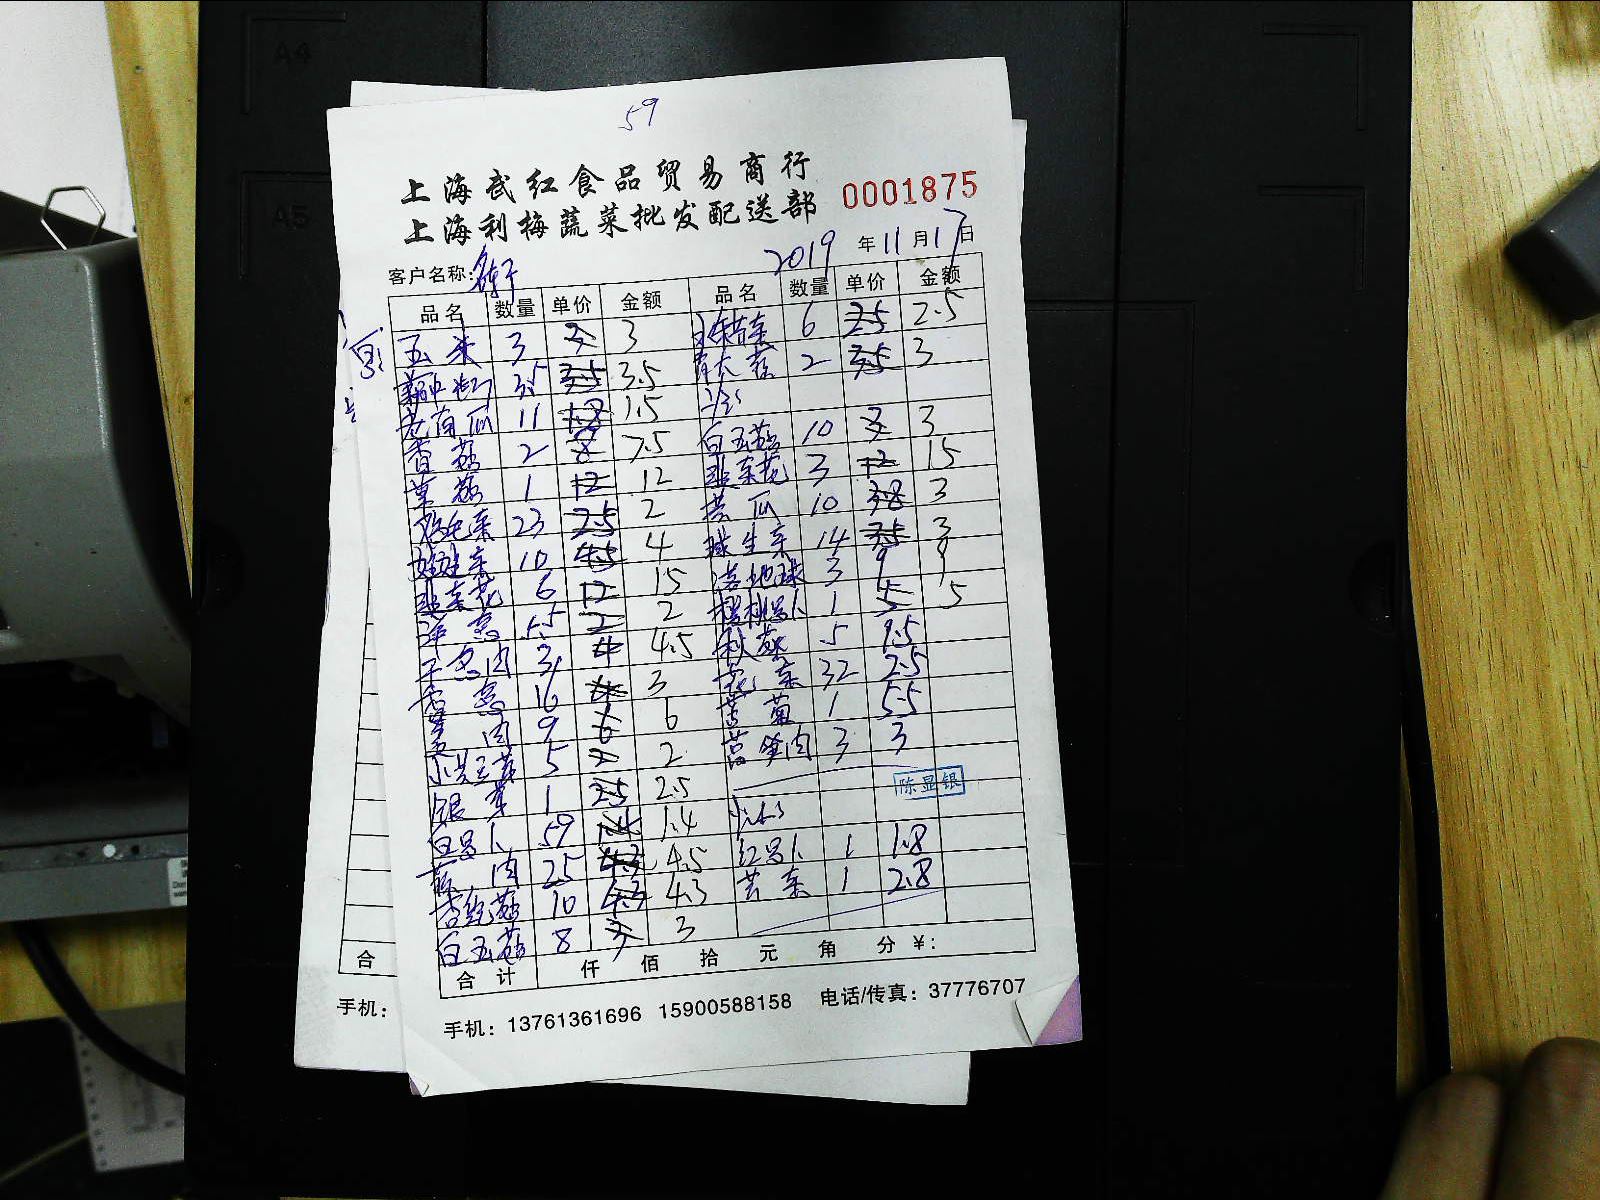 59
上海武红食品贸易商行
上海利梅蔬菜批发配送部
0001875
客户名称:
2019年11月17日
品名 数量 单价 金额 品名 数量 单价 金额
玉米 3 3 3 6 2.5 2.5
3.5 3.5 3.5 2 3.5 3
老南瓜 11 1.8 1.5
香菇 2 8 7.5 白玉菇 10 3 3
草菇 1 12 12 韭菜花 3 12 15
鸡毛菜 23 2.5 2 苦瓜 10 3.8 3
娃娃菜 10 4.5 4 球生菜 14 3.5 3
韭菜花 6 12 15 3 9 9
洋葱 55 2 2 樱桃萝卜 1 5 5
3 4 4.5 秋葵 5 9.5
香葱 16 4 3 花菜 32 2.5
姜肉 9 6 6 茼蒿 1 5.5
5 2 2 莴笋肉 3 3
银芽 1 2.5 2.5
陈显银
白萝卜 59 1.4 1.4
25 4.3 4.5 红萝卜 1 1.8
杏鲍菇 10 4.3 4.3 1 2.8
白玉菇 8 3 3
合计 仟 佰 拾 元 角 分 ¥:
手机: 13761361696 15900588158 电话/传真: 37776707
合
手机:
A4
A5